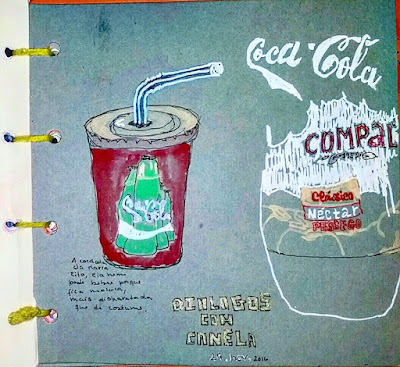 Coca-Cola
COMPAL
Clássico
Néctar
PESSEGO
A cocacola
da Maria
Rita, ela nem
pode beber porque
fica maluca,
mais disparatada
que de costume.
DIALOGOS
COM
CANELA